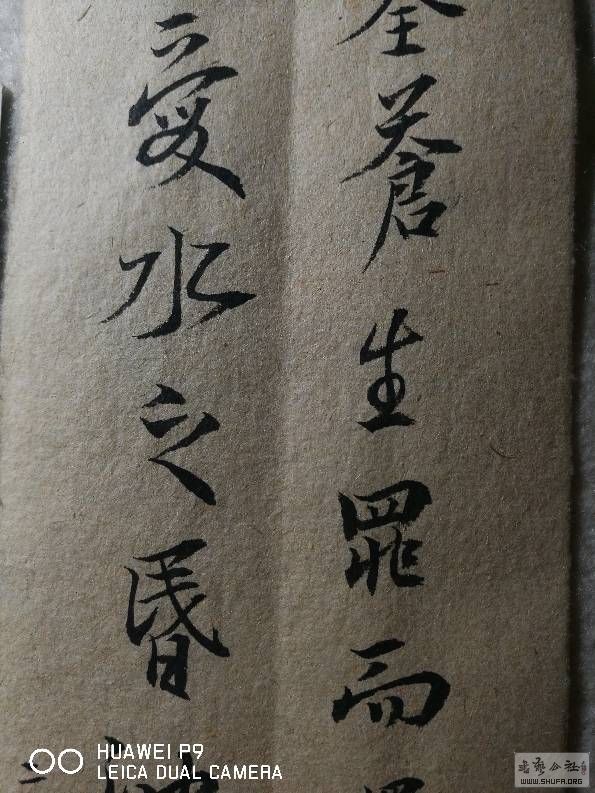 全蒼生罪而
愛水之昬
HUAWEI P9
LEICA DUAL CAMERA
公社
WWW.SHUFA.ORG